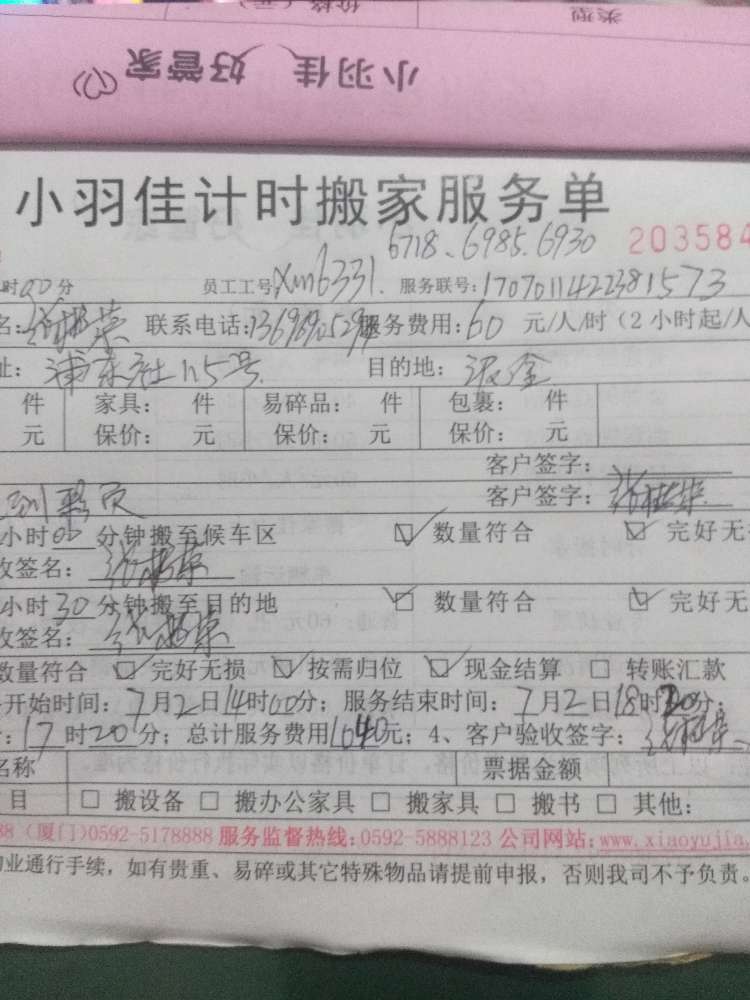 价格（元） 类型
小羽佳 好管家
小羽佳计时搬家服务单
6718、6985.6930 203584
时00分 员工工号xm6331. 服务联号:1707011422381573
名: 荣 联系电话: 服务费用:60 元/人/时（2小时起/人
址: 浦东社115号 目的地:
件 家具: 件 易碎品: 件 包裹: 件
元 保价: 元 保价: 元 保价: 元
客户签字:
客户签字:
小时00分钟搬至候车区 ☑ 数量符合 ☑ 完好无
收签名:
小时30分钟搬至目的地 ☑ 数量符合 ☑ 完好无
收签名:
数量符合 ☑ 完好无损 ☑ 按需归位 ☑ 现金结算 □ 转账汇款
开始时间:7月2日14时00分; 服务结束时间:7月2日18时20分;
:17时20分; 总计服务费用1040元; 4、客户验收签字:
名称 票据金额
目 □ 搬设备 □ 搬办公家具 □ 搬家具 □ 搬书 □ 其他:
88 (厦门)0592-5178888 服务监督热线:0592-5888123 公司网站:www.xiaoyujia.
业通行手续，如有贵重、易碎或其它特殊物品请提前申报，否则我司不予负责。